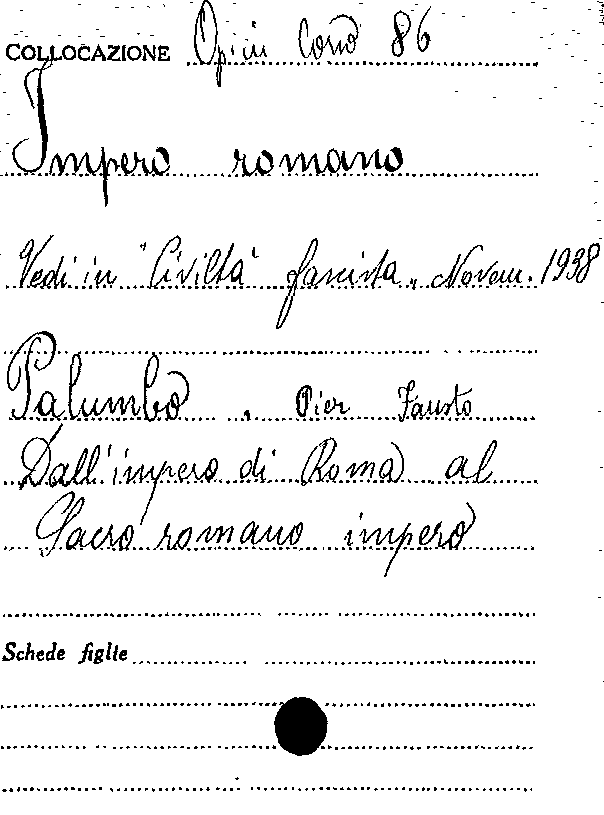 COLLOCAZIONE Op. in Cors 86
Impero romano
Vedi in "Civiltà" fascista" Novem. 1938
Palumbo, Pier Fausto
Dall'impero di Roma al
Sacro romano impero
Schede figlie